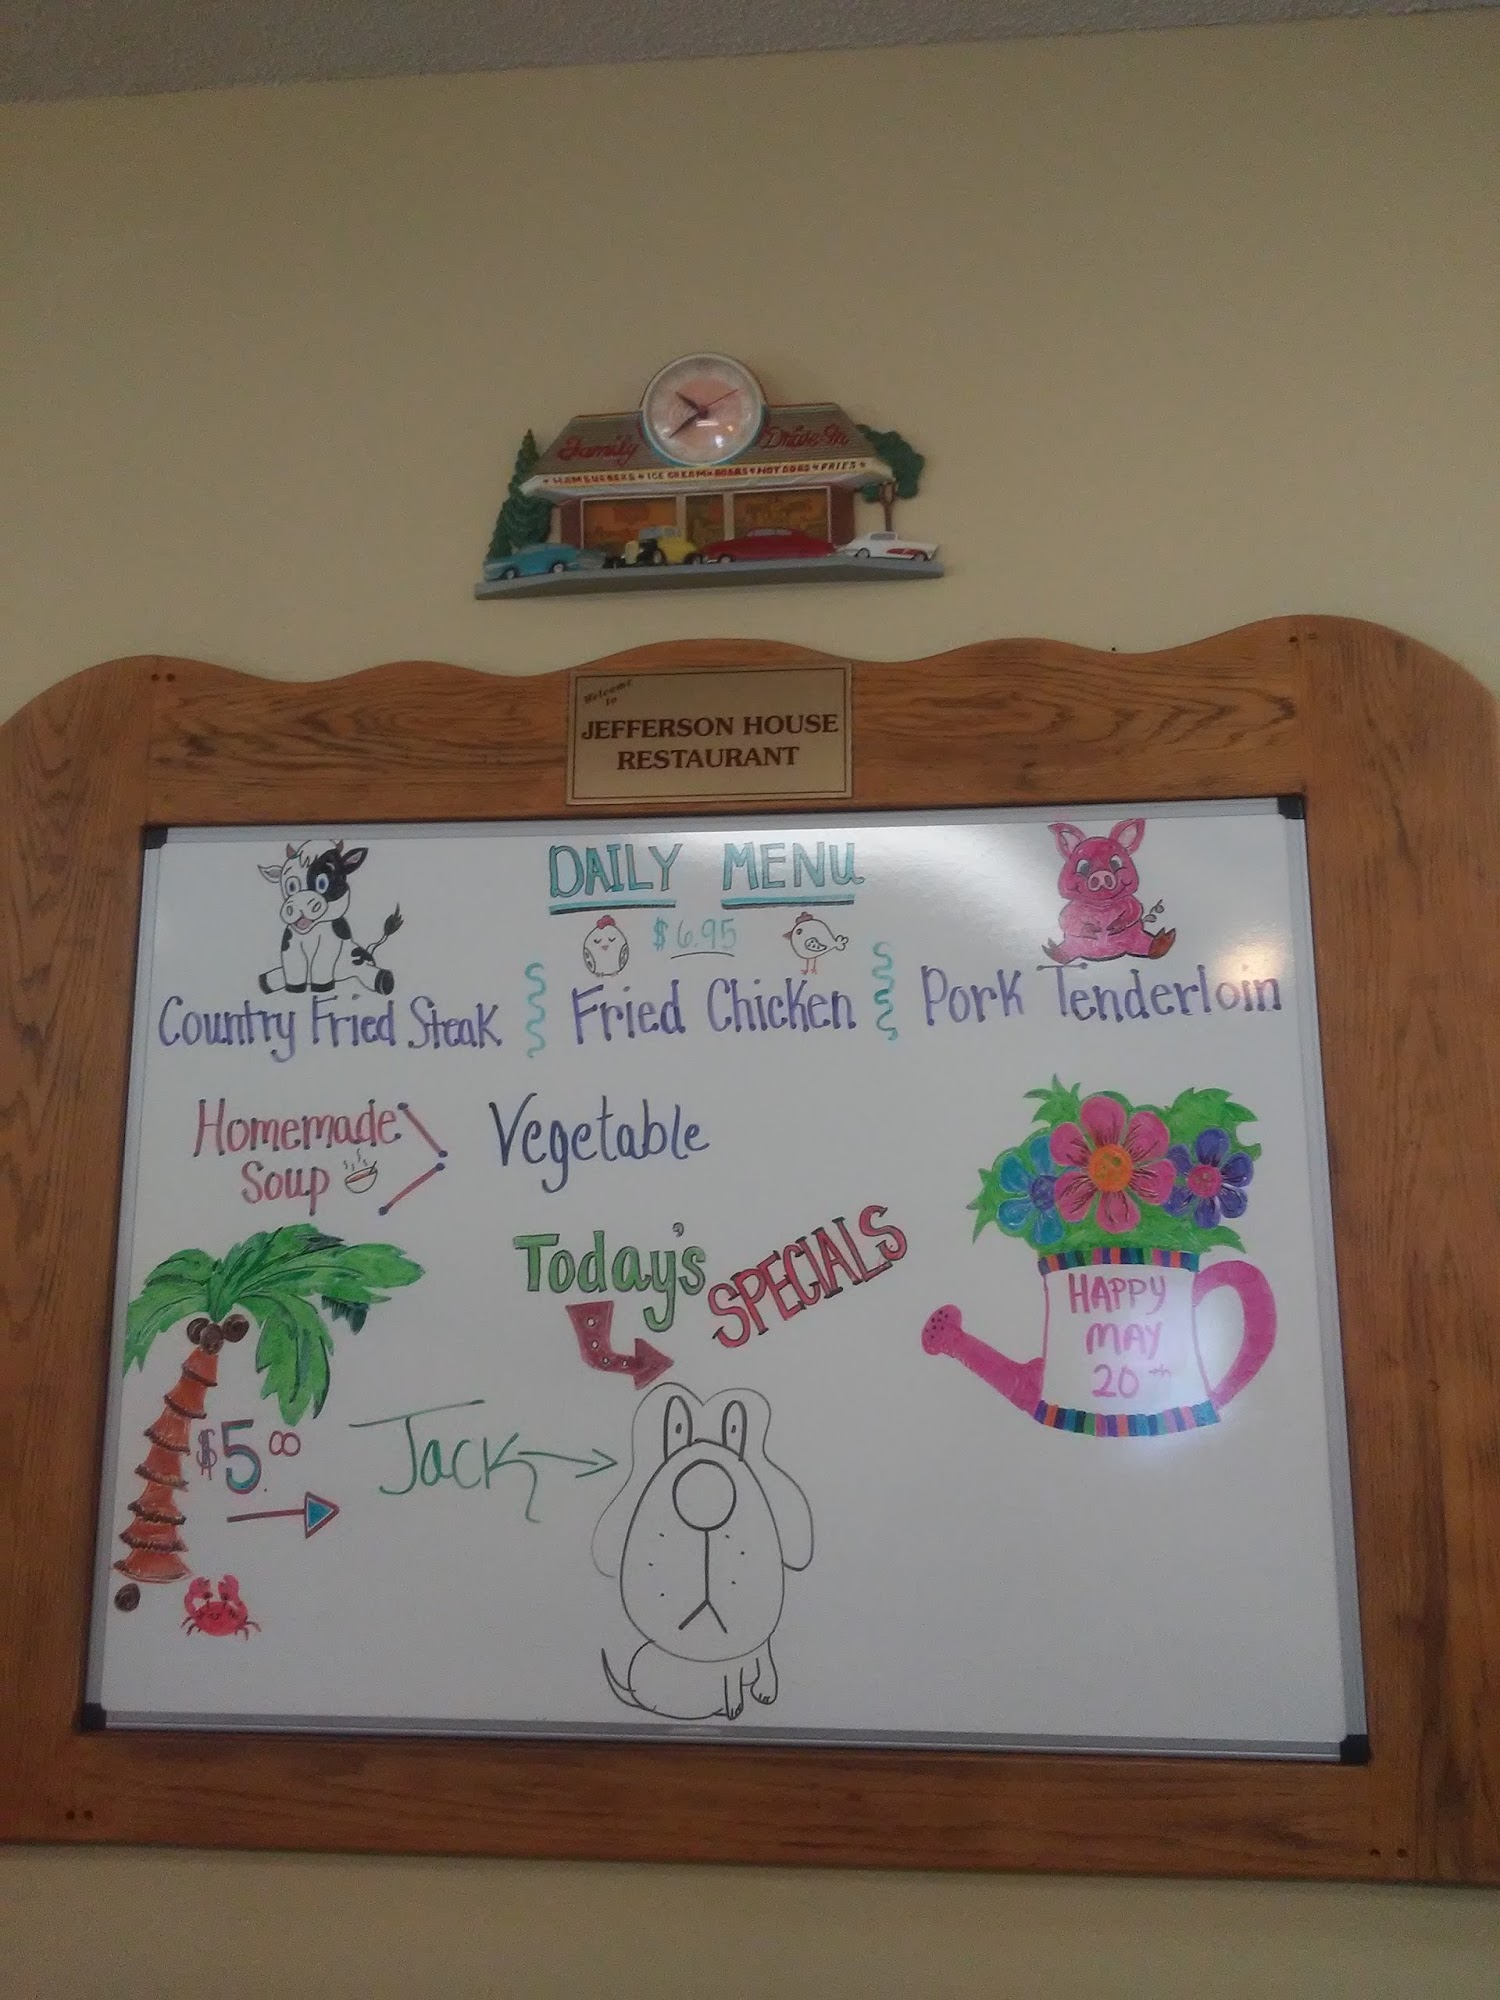 Family Drive-In
HAMBURGERS ★ ICE CREAM ★ SODAS ★ HOT DOGS ★ FRIES
Welcome
to
JEFFERSON HOUSE
RESTAURANT
DAILY MENU
$6.95
Country Fried Steak
Fried Chicken
Pork Tenderloin
Homemade
Soup
Vegetable
Today's SPECIALS
HAPPY
MAY
20th
$5.00
Jack